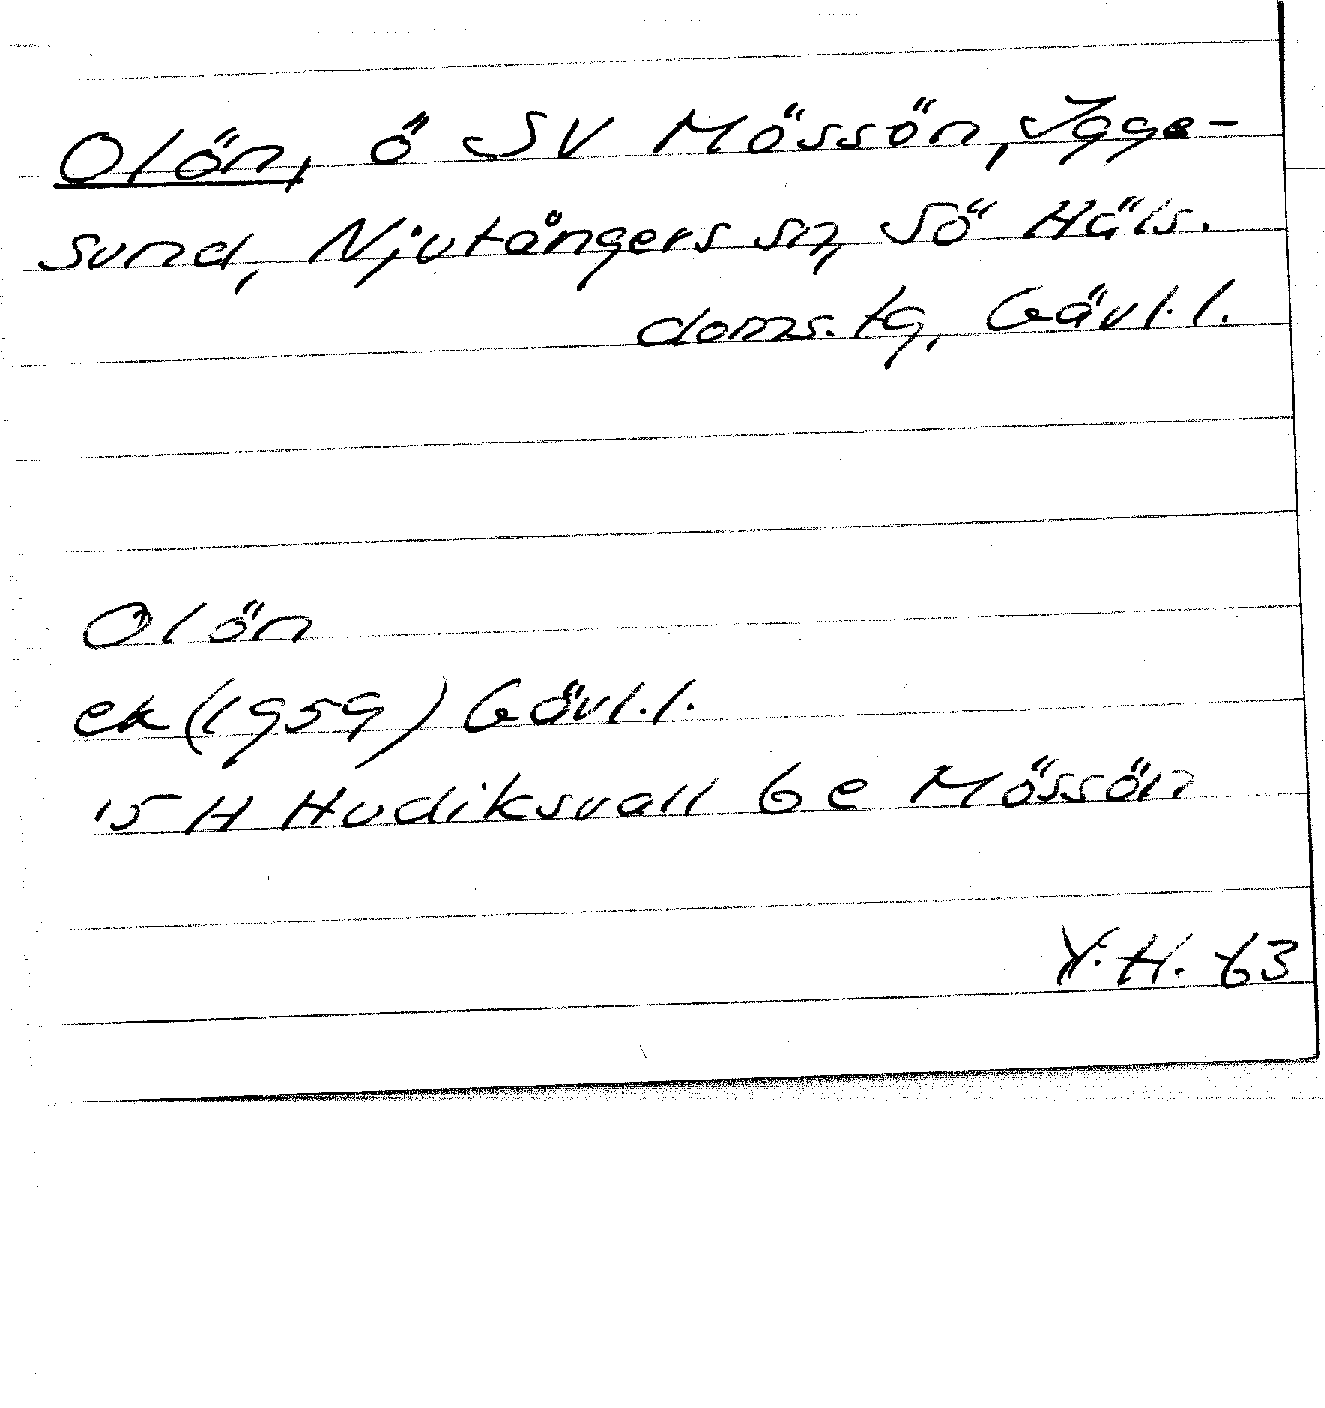 Olön, ö SV Mössön, Igge-
sund, Njutångers sn, Sö Häls.
doms.tg, Gävl.l.
Olön
ek (1959) Gävl.l.
15 H Hudiksvall 6 e Mössön
Y.H. 63